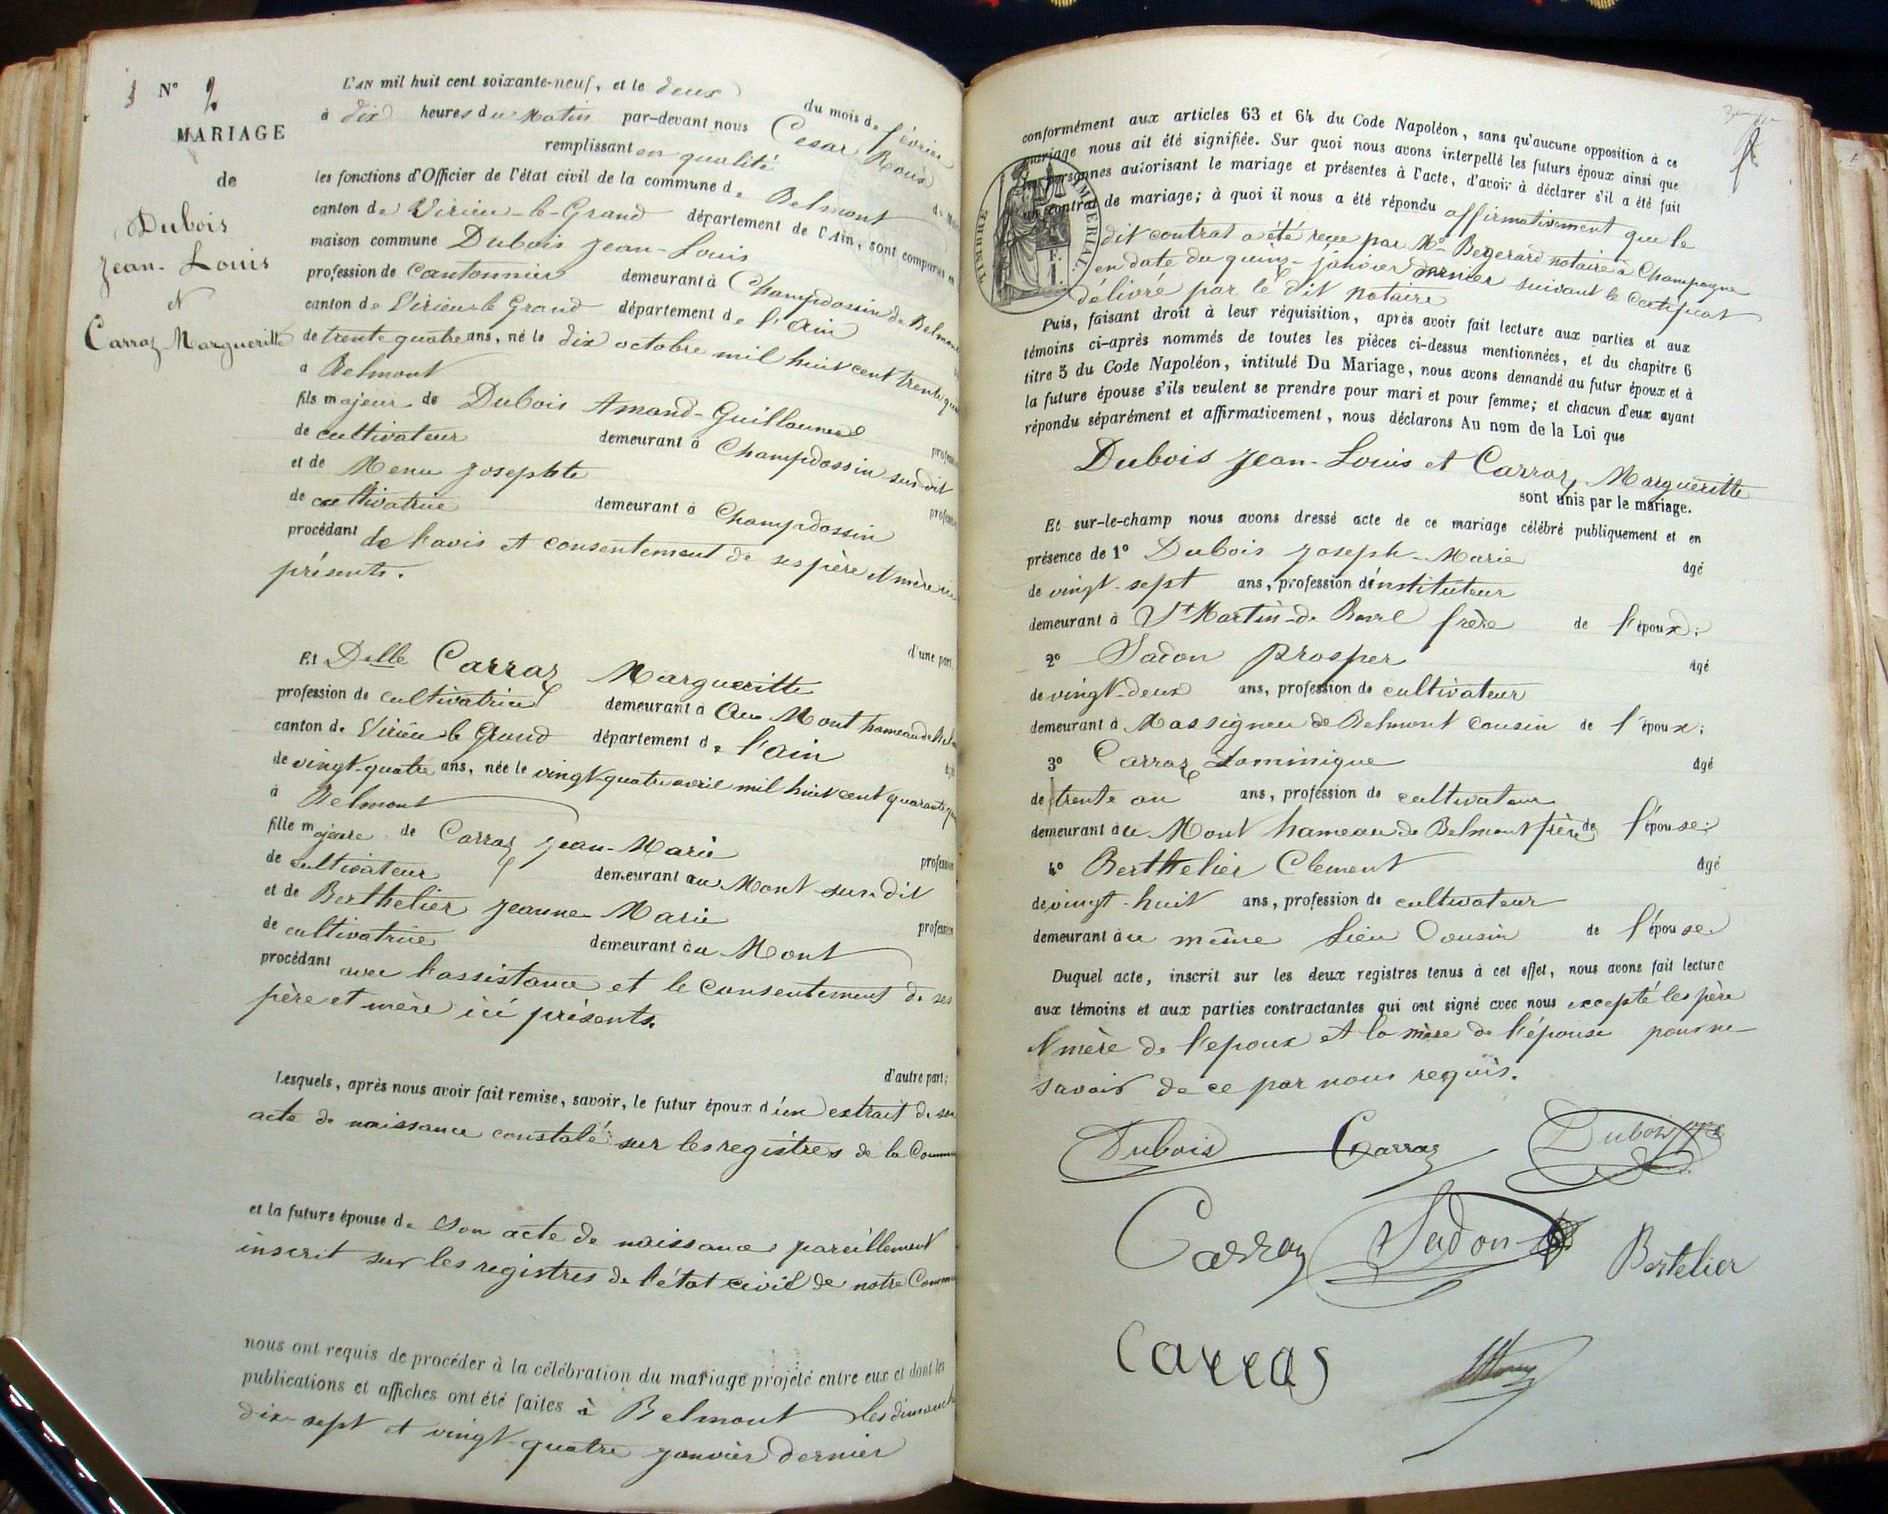 N° 2
MARIAGE
de
Dubois
Jean-Louis
et
Carraz Margueritte
L'AN mil huit cent soixante-neuf, et le deux du mois de février
à dix heures du Matin par-devant nous Cesar Roux
remplissant en qualité
les fonctions d'Officier de l'état civil de la commune de Belmont
canton de Virieu-le-Grand département de l'Ain, sont comparus en
maison commune Dubois Jean-Louis
profession de Cantonnier demeurant à Champdossin de Belmont
canton de Virieu le Grand département de l'ain
de trente quatre ans, né le dix octobre mil huit cent trente qua
à Belmont
fils majeur de Dubois Amand-Guillaume profession
de cultivateur demeurant à Champdossin sus-dit
et de Menu Josephte profession
de cultivatrice demeurant à Champdossin
procédant de l'avis et consentement de ses père et mère ici
présents.
d'une part,
Et Delle Carraz Margueritte
profession de cultivatrice demeurant à Au Mont hameau de Bel
canton de Virieu le Grand département de l'ain
de vingt-quatre ans, née le vingt-quatre avril mil huit cent quarante qua
à Belmont
fille majeure de Carraz Jean-Marie profession
de cultivateur demeurant au Mont sus-dit
et de Berthelier Jeanne-Marie profession
de cultivatrice demeurant au Mont
procédant avec l'assistance et le consentement de ses
père et mère ici présents.
d'autre part;
Lesquels, après nous avoir fait remise, savoir, le futur époux d'un extrait de son
acte de naissance constaté sur les registres de la Commu
et la future épouse de Son acte de naissance pareillement
inscrit sur les registres de l'état civil de notre Commu
nous ont requis de procéder à la célébration du mariage projeté entre eux et dont les
publications et affiches ont été faites à Belmont les dimanch
dix-sept et vingt-quatre janvier dernier
conformément aux articles 63 et 64 du Code Napoléon, sans qu'aucune opposition à ce
mariage nous ait été signifiée. Sur quoi nous avons interpellé les futurs époux ainsi que
les personnes autorisant le mariage et présentes à l'acte, d'avoir à déclarer s'il a été fait
un contrat de mariage; à quoi il nous a été répondu affirmativement que le
TIMBRE IMPERIAL.
1 F.
dit contrat a été reçu par Me Begerard notaire à Champagne
en date du quinze janvier dernier suivant le Certificat
délivré par le dit notaire
Puis, faisant droit à leur réquisition, après avoir fait lecture aux parties et aux
témoins ci-après nommés de toutes les pièces ci-dessus mentionnées, et du chapitre 6
titre 5 du Code Napoléon, intitulé Du Mariage, nous avons demandé au futur époux et à
la future épouse s'ils veulent se prendre pour mari et pour femme; et chacun d'eux ayant
répondu séparément et affirmativement, nous déclarons Au nom de la Loi que
Dubois Jean-Louis et Carraz Margueritte
sont unis par le mariage.
Et sur-le-champ nous avons dressé acte de ce mariage célébré publiquement et en
présence de 1° Dubois Joseph-Marie âgé
de vingt-sept ans, profession d'instituteur
demeurant à St Martin-de Bavel frère de l'époux;
2° Sadon Prosper âgé
de vingt-deux ans, profession de cultivateur
demeurant à Massignieu de Belmont cousin de l'époux;
3° Carraz Dominique âgé
de trente an ans, profession de cultivateur
demeurant au Mont hameau de Belmont frère de l'épouse;
4° Berthelier Clement âgé
de vingt-huit ans, profession de cultivateur
demeurant au même lieu Cousin de l'épouse.
Duquel acte, inscrit sur les deux registres tenus à cet effet, nous avons fait lecture
aux témoins et aux parties contractantes qui ont signé avec nous excepté les père
et mère de l'epoux et la mère de l'épouse pour ne
savoir de ce par nous requis.
Dubois Carraz Dubois
Carraz Sadon Bertelier
Carras